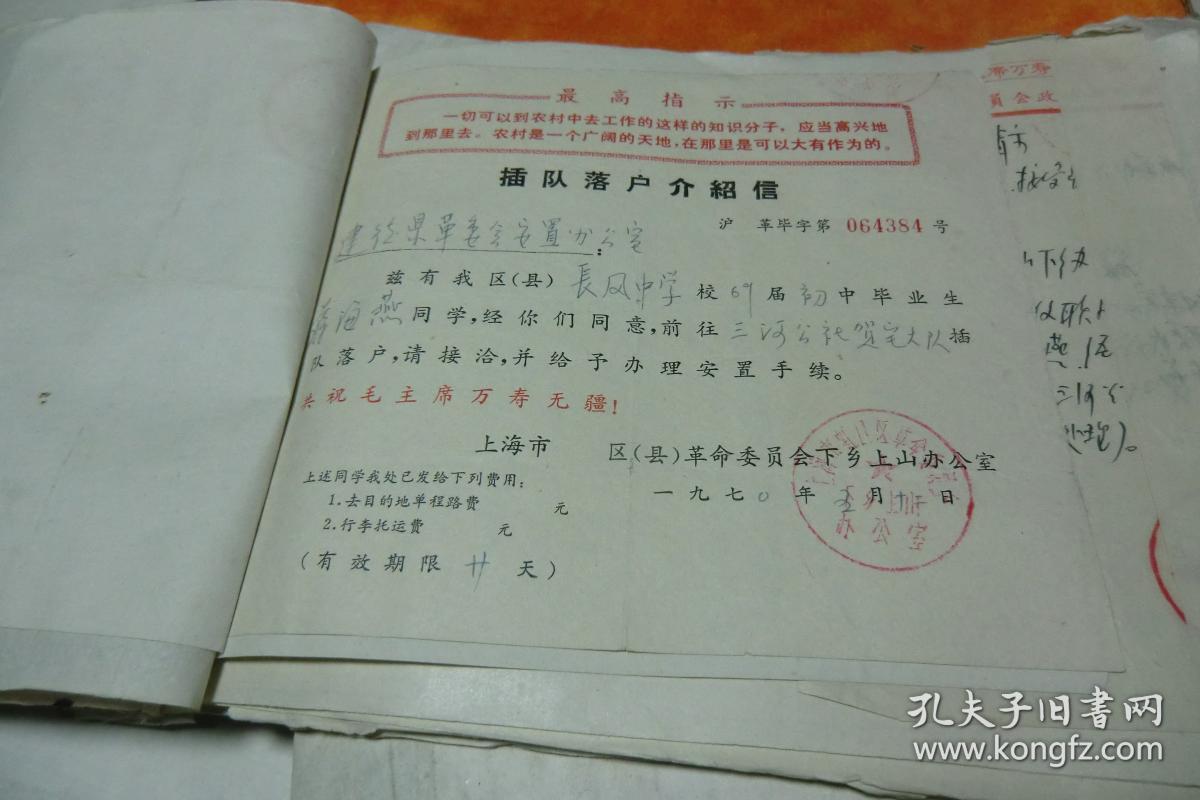 最高指示
一切可以到农村中去工作的这样的知识分子，应当高兴地
到那里去。农村是一个广阔的天地，在那里是可以大有作为的。
插队落户介紹信
沪 革毕字第 064384 号
建德县革委会安置办公室：
兹有我区(县) 長风中学 校 69 届 初 中毕业生
海燕 同学，经你们同意，前往 三河公社贺宅大队 插
队落户，请接洽，并给予办理安置手续。
共祝毛主席万寿无疆！
上海市 区(县)革命委员会下乡上山办公室
一九七0 年 五 月 日
上述同学我处已发给下列费用：
1.去目的地单程路费 元
2.行李托运费 元
(有效期限 廿 天)
办公室
席万寿
员会政
三河公
孔夫子旧书网
www.kongfz.com